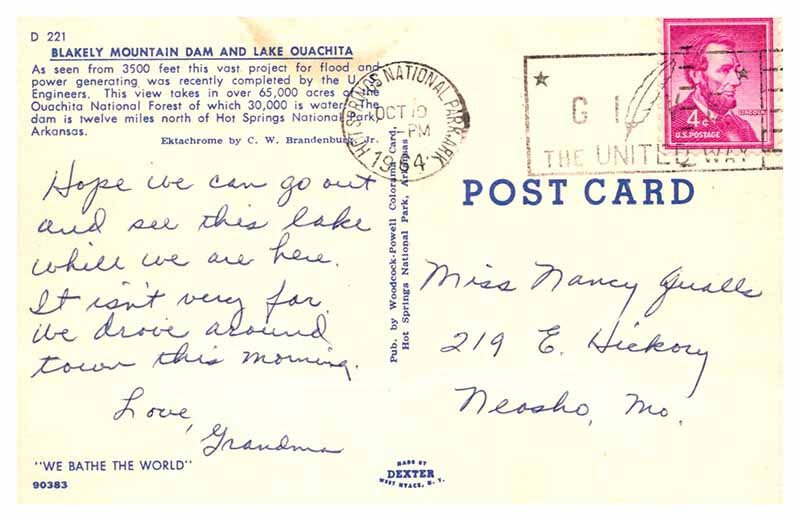 D 221
BLAKELY MOUNTAIN DAM AND LAKE OUACHITA
As seen from 3500 feet this vast project for flood and
power generating was recently completed by the U.
Engineers. This view takes in over 65,000 acres of the
Ouachita National Forest of which 30,000 is water. The
dam is twelve miles north of Hot Springs National Park,
Arkansas.
Ektachrome by C. W. Brandenburg, Jr.
Hope we can go out
and see this lake
while we are here.
It isn't very far.
We drove around
town this morning.
Love,
Grandma
"WE BATHE THE WORLD"
90383
HOT SPRINGS NATIONAL PARK, ARK
OCT 19
-PM
1964
Pub. by Woodcock-Powell Colorama Card,
Hot Springs National Park, Arkansas
G I
THE UNITED WAY
4¢
LINCOLN
U.S. POSTAGE
POST CARD
Miss Nancy Qualls
219 E. Hickory
Neosho, Mo.
MADE BY
DEXTER
WEST NYACK, N. Y.